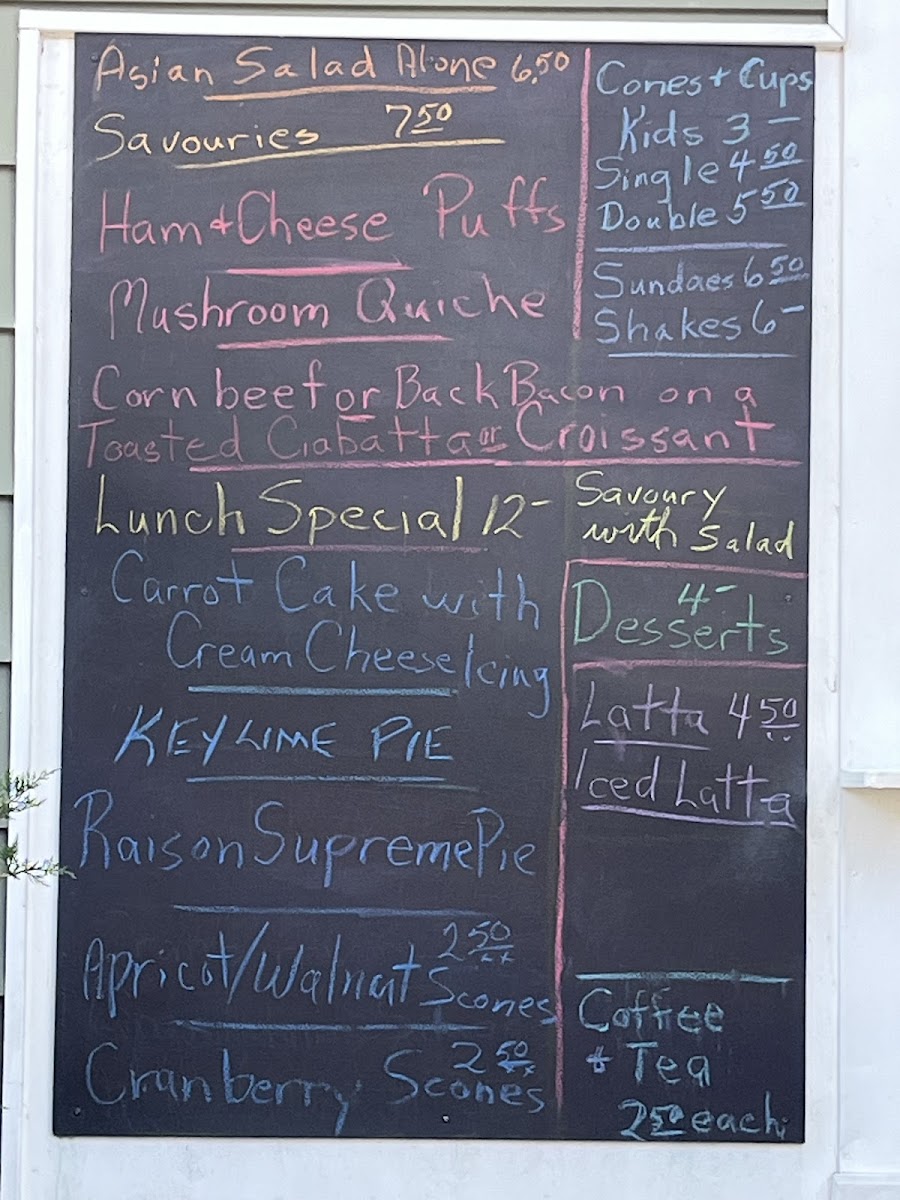 Asian Salad Alone 6.50
Savouries 7.50
Ham + Cheese Puffs
Mushroom Quiche
Corn beef or Back Bacon on a
Toasted Ciabatta or Croissant
Lunch Special 12-
Carrot Cake with
Cream Cheese Icing
KEY LIME PIE
Raison Supreme Pie
Apricot/Walnut Scones 2.50
Cranberry Scones 2.50
Cones + Cups
Kids 3 -
Single 4 50
Double 5 50
Sundaes 6 50
Shakes 6 -
Savoury
with Salad
4-
Desserts
Latta 4 50
Iced Latta
Coffee
+ Tea
2 50 each